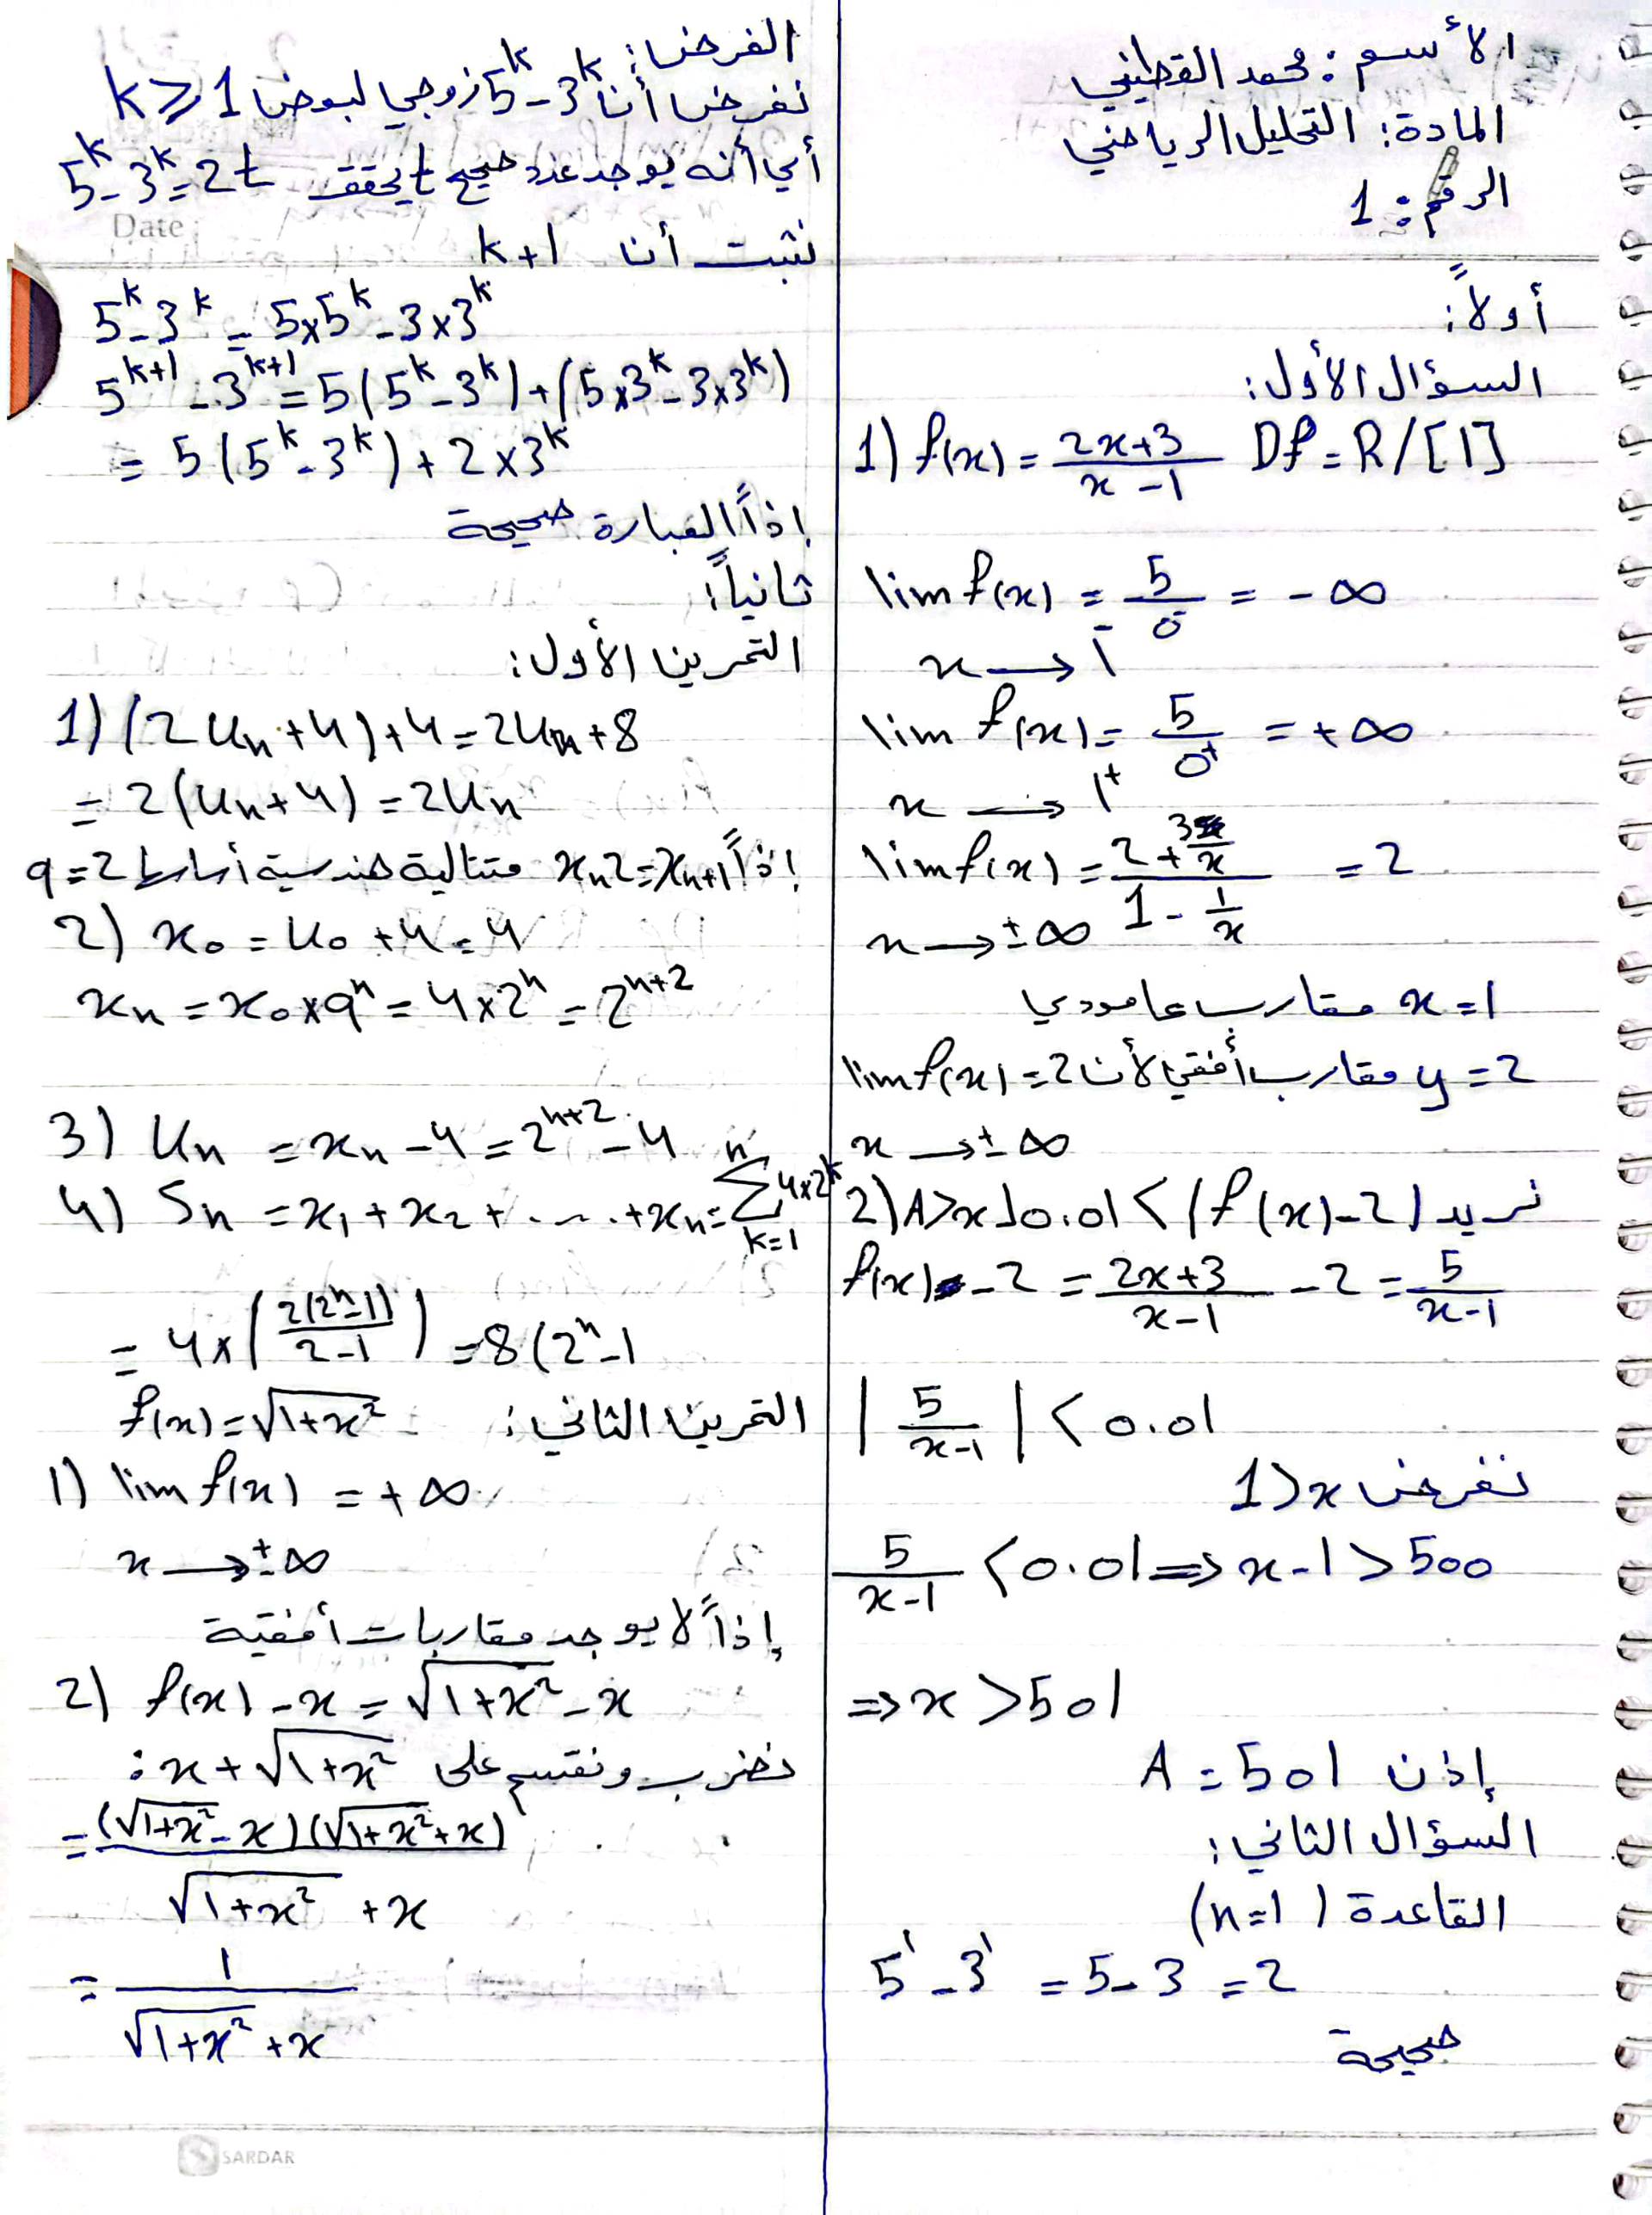 الأسم: محمد القطيفي
المادة: التحليل الرياضي
الرقم: 1
أولاً:
السؤال الأول:
1) f(x) = \frac{2x+3}{x-1} Df = R/[1]
lim f(x) = \frac{5}{0^-} = -∞
x → 1^-
lim f(x) = \frac{5}{0^+} = +∞
x → 1^+
lim f(x) = \frac{2+\frac{3}{x}}{1-\frac{1}{x}} = 2
x → ±∞
x=1 مقارب عامودي
y=2 مقارب أفقي لأن lim f(x) = 2
x → ±∞
2) A>x لـ 0.01 < |f(x)-2| نريد
f(x) - 2 = \frac{2x+3}{x-1} - 2 = \frac{5}{x-1}
|\frac{5}{x-1}| < 0.01
نفرض 1>x
\frac{5}{x-1} < 0.01 ⇒ x-1 > 500
⇒ x > 501
إذن A = 501
السؤال الثاني:
القاعدة (n=1)
5^1 - 3^1 = 5-3 = 2
صحيحة
الفرض:
نفرض أن 5^k - 3^k زوجي لبعض k ⩾ 1
أي أنه يوجد عدد صحيح t يحقق 5^k - 3^k = 2t
Date:
نثبت أن k+1
5^k - 3^k = 5×5^k - 3×3^k
5^{k+1} - 3^{k+1} = 5(5^k - 3^k) + (5×3^k - 3×3^k)
= 5(5^k - 3^k) + 2×3^k
إذاً العبارة صحيحة
ثانياً:
التمرين الأول:
1) (2u_n+4)+4 = 2u_n+8
= 2(u_n+4) = 2u_n
إذاً x_n2=x_{n+1} متتالية هندسية أساسها q=2
2) x_0 = u_0 + 4 = 4
x_n = x_0×q^n = 4×2^n = 2^{n+2}
3) u_n = x_n - 4 = 2^{n+2} - 4
4) S_n = x_1 + x_2 + ..... + x_n = \sum_{k=1}^{n} 4×2^k
= 4×(\frac{2(2^n-1)}{2-1}) = 8(2^n-1
التمرين الثاني: f(x) = \sqrt{1+x^2}
1) lim f(x) = +∞
x → ±∞
إذاً لا يوجد مقاربات أفقية
2) f(x) - x = \sqrt{1+x^2} - x
نضرب ونقسم على x + \sqrt{1+x^2} :
= \frac{(\sqrt{1+x^2} - x)(\sqrt{1+x^2} + x)}{\sqrt{1+x^2} + x}
= \frac{1}{\sqrt{1+x^2} + x}
SARDAR